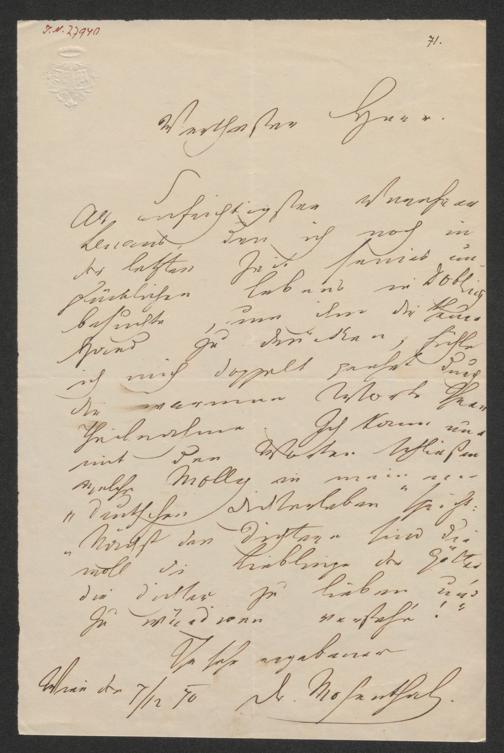 I.N. 27940
71.
Verehrtester Herr.
Als aufrichtigster Verehrer
Lenaus, den ich noch in
der letzten Zeit seines un
glücklichen Lebens in Döbling
besuchte, um ihm die
Hand zu drücken, fühle
ich mich doppelt geehrt durch
die warmen Worte Ihrer
Theilnahme. Ich kann nur
mit den Worten schließen
welche Molly in mein
„deutschen Dichterleben" spricht:
„Nächst den Dichtern sind die
wohl die Lieblinge der Götter
die Dichter zu lieben und
zu würdigen verstehn!"
Ihr sehr ergebener
Wien den 7/12 70 Dr. Mosenthal.